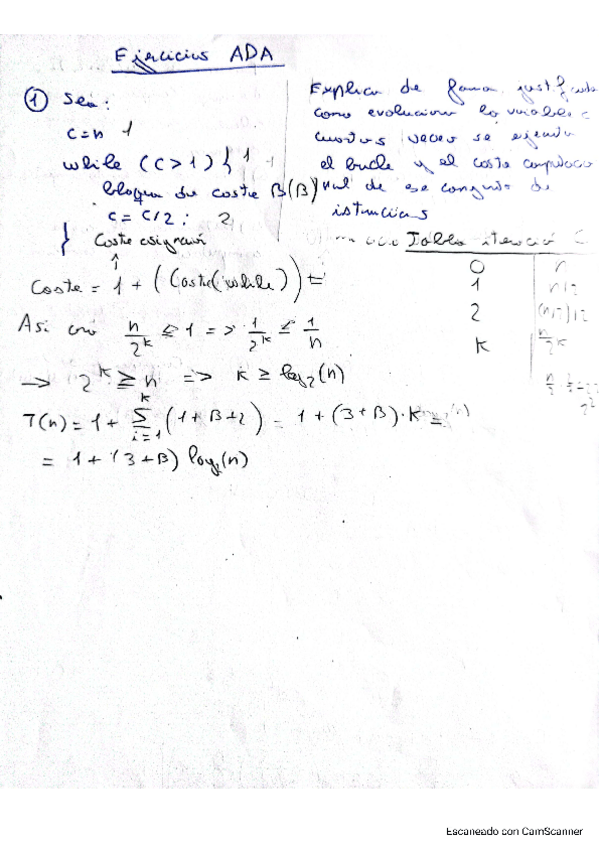 Ejercicios ADA
① Sea:
c=n 1
while (c>1) { 1
bloque de coste B(B)
c = c/2; 2
} Coste asignari
Explica de forma justificada
como evoluciona la variable c
cuantas veces se ejecuta
el bucle y el coste computacio
nal de ese conjunto de
istruccias
Tabla iteració C
0 n
1 n/2
2 (n/2)/2
K n/2^k
Coste = 1 + (Coste(while)) =
Asi con n/2^k ≤ 1 => 1/2^k ≤ 1/n
→ 2^k ≥ n => K ≥ log2(n)
T(n) = 1 + Σ i=1 k (1+B+2) = 1 + (3+B)·K =
= 1 + (3+B) log2(n)
Escaneado con CamScanner